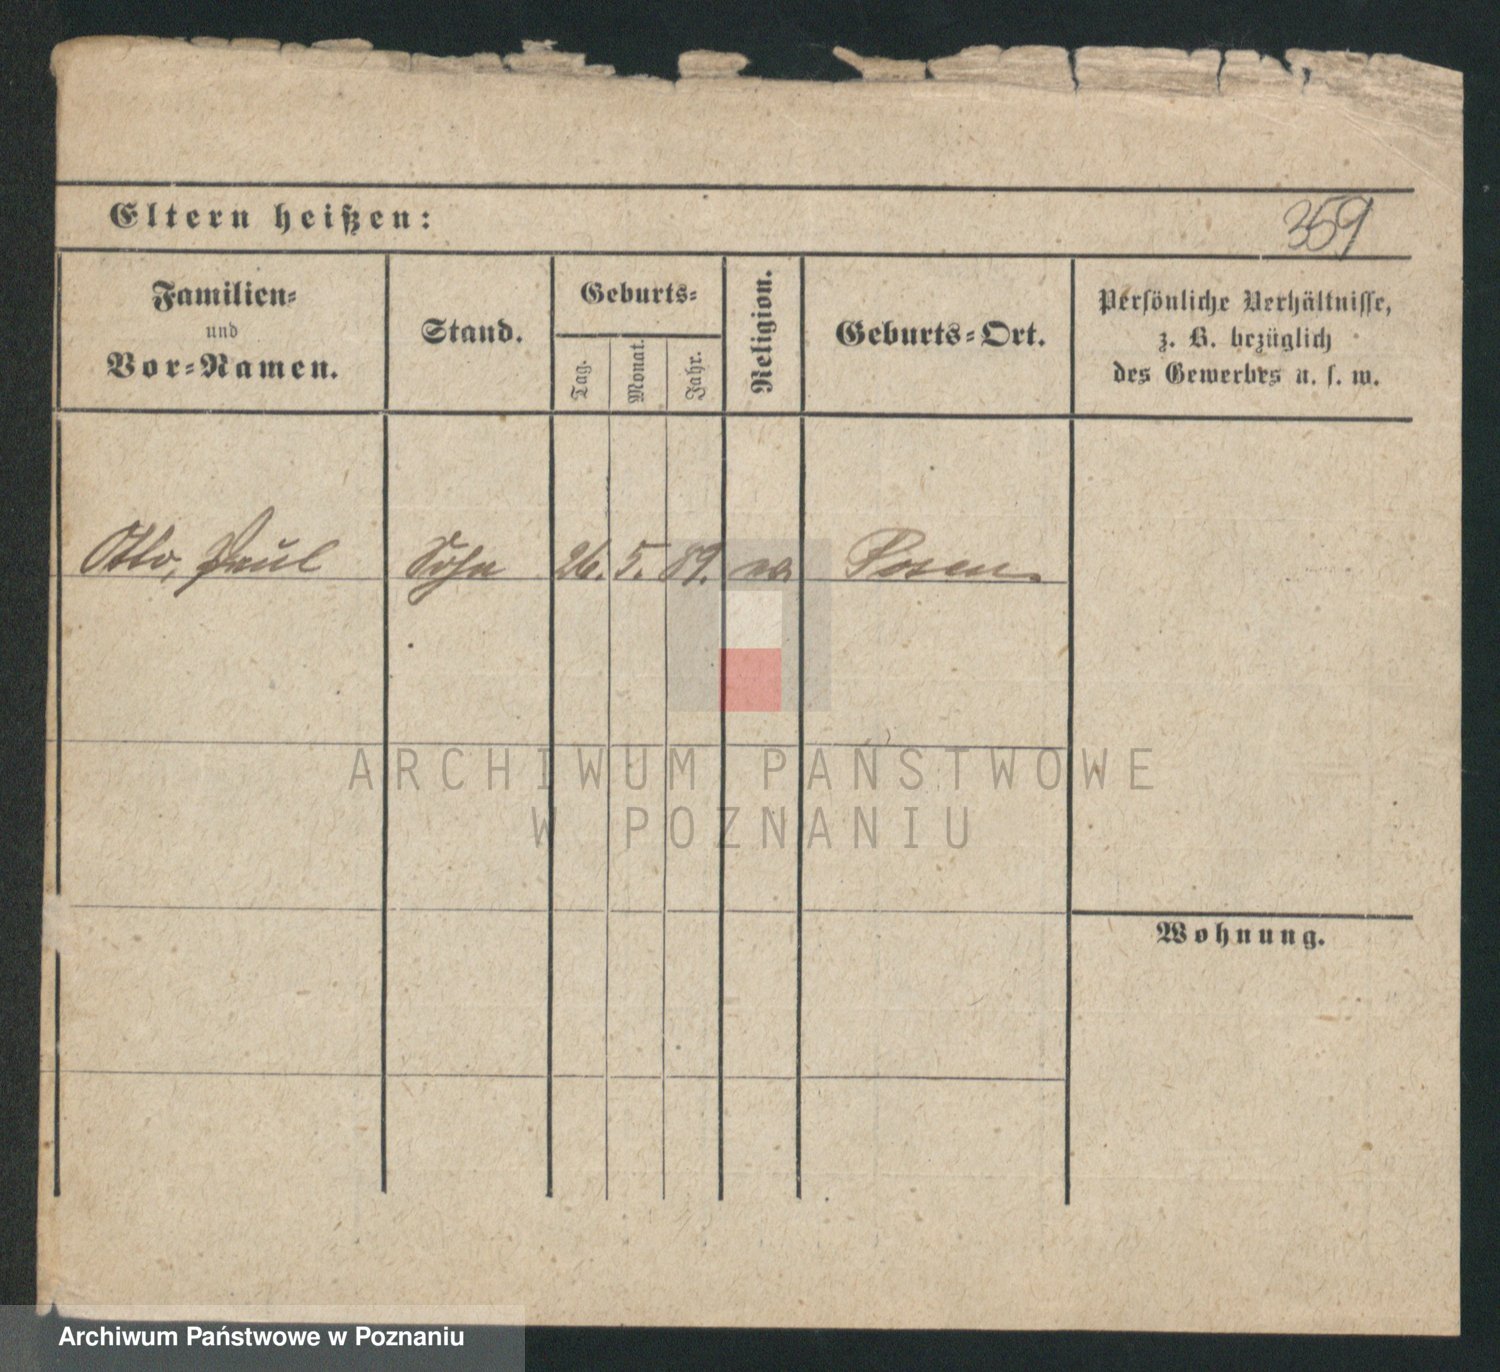 Eltern heißen:
359
Familien-
und
Vor-Namen.
Stand.
Geburts-
Tag.
Monat.
Jahr.
Religion.
Geburts-Ort.
Persönliche Verhältnisse,
z. B. bezüglich
des Gewerbes u. s. w.
Otto, Paul Sohn 26. 5. 89. ev. Posen
ARCHIWUM PAŃSTWOWE
W POZNANIU
Wohnung.
Archiwum Państwowe w Poznaniu